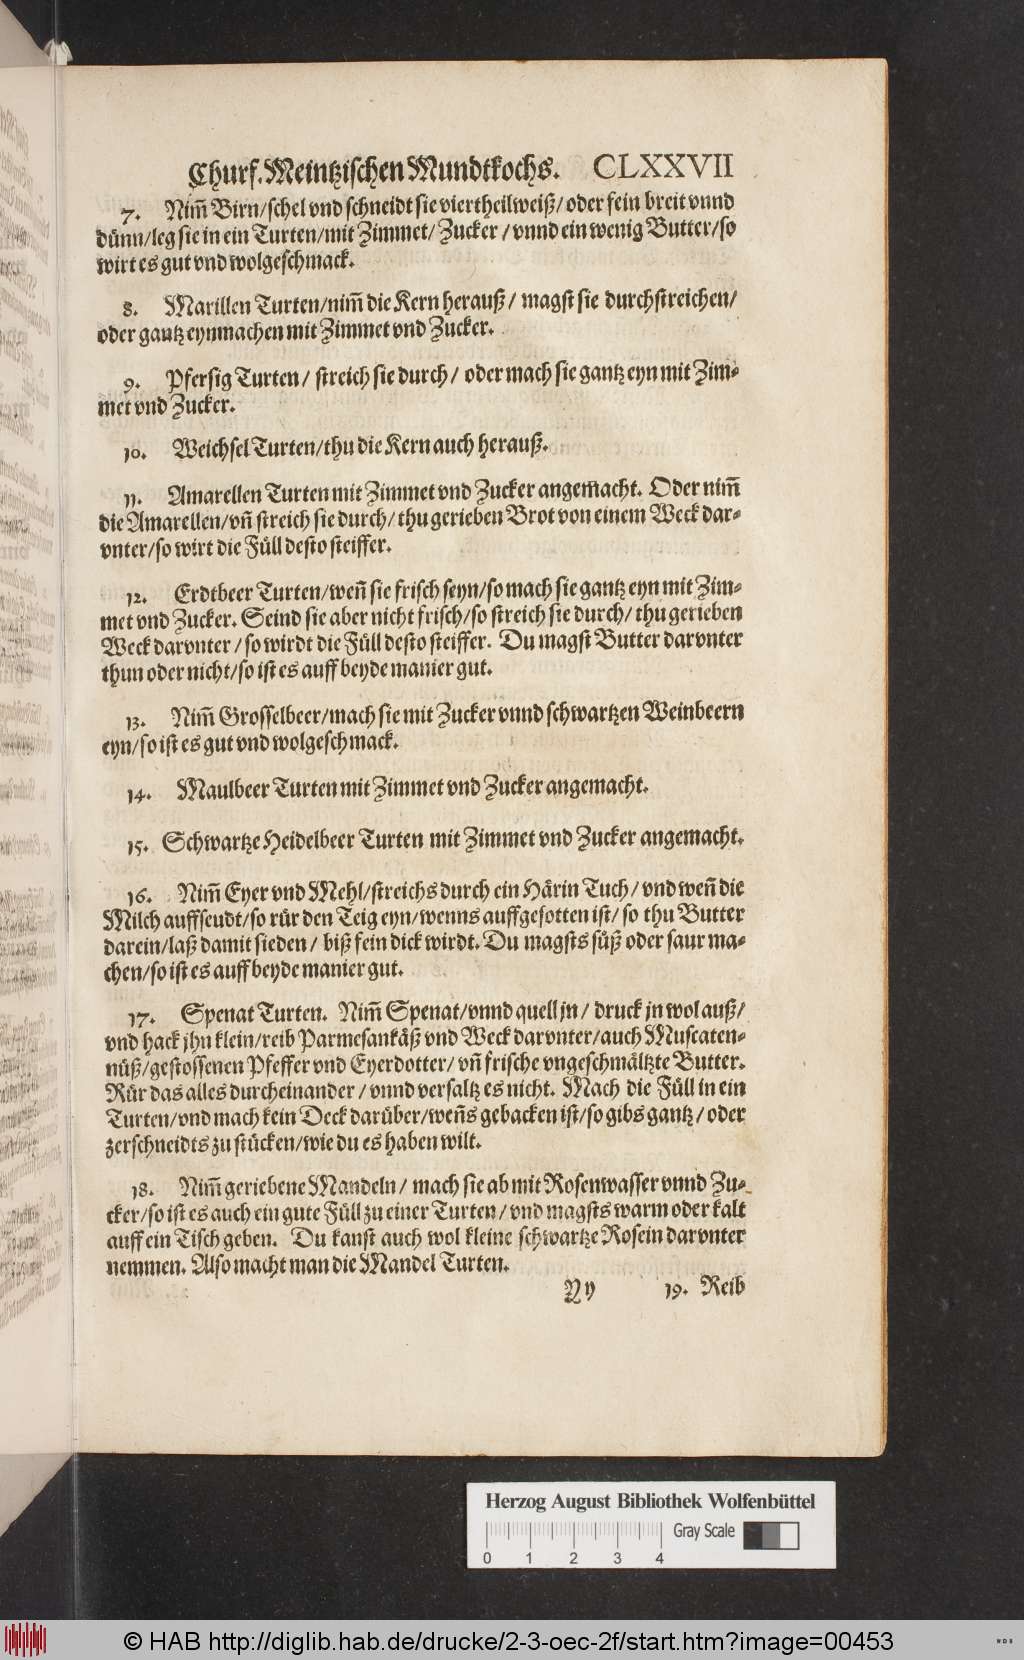 Churf. Meintzischen Mundtkochs. CLXXVII
7. Nim̃ Birn/schel vnd schneidt sie viertheilweiß/oder fein breit vnnd
dünn/leg sie in ein Turten/mit Zimmet/Zucker/vnnd ein wenig Butter/so
wirt es gut vnd wolgeschmack.
8. Marillen Turten/nim̃ die Kern herauß/ magst sie durchstreichen/
oder gantz eynmachen mit Zimmet vnd Zucker.
9. Pfersig Turten/ streich sie durch/ oder mach sie gantz eyn mit Zim-
met vnd Zucker.
10. Weichsel Turten/thu die Kern auch herauß.
11. Amarellen Turten mit Zimmet vnd Zucker angemacht. Oder nim̃
die Amarellen/vñ streich sie durch/thu gerieben Brot von einem Weck dar-
vnter/so wirt die Füll desto steiffer.
12. Erdtbeer Turten/weñ sie frisch seyn/so mach sie gantz eyn mit Zim-
met vnd Zucker. Seind sie aber nicht frisch/so streich sie durch/ thu gerieben
Weck darvnter/so wirdt die Füll desto steiffer. Du magst Butter darvnter
thun oder nicht/so ist es auff beyde manier gut.
13. Nim̃ Grosselbeer/mach sie mit Zucker vnnd schwartzen Weinbeern
eyn/so ist es gut vnd wolgeschmack.
14. Maulbeer Turten mit Zimmet vnd Zucker angemacht.
15. Schwartze Heidelbeer Turten mit Zimmet vnd Zucker angemacht.
16. Nim̃ Eyer vnd Mehl/streichs durch ein Härin Tuch/ vnd weñ die
Milch auffseudt/so rür den Teig eyn/wenns auffgesotten ist/ so thu Butter
darein/laß damit sieden/ biß fein dick wirdt. Du magsts süß oder saur ma-
chen/so ist es auff beyde manier gut.
17. Spenat Turten. Nim̃ Spenat/vnnd quell jn/ druck jn wol auß/
vnd hack jhn klein/reib Parmesankäß vnd Weck darvnter/auch Muscaten-
nüß/gestossenen Pfeffer vnd Eyerdotter/ vñ frische vngeschmältzte Butter.
Rür das alles durcheinander/vnnd versaltz es nicht. Mach die Füll in ein
Turten/vnd mach kein Deck darüber/weñs gebacken ist/so gibs gantz/oder
zerschneidts zu stücken/wie du es haben wilt.
18. Nim̃ geriebene Mandeln/ mach sie ab mit Rosenwasser vnnd Zu-
cker/so ist es auch ein gute Füll zu einer Turten/vnd magsts warm oder kalt
auff ein Tisch geben. Du kanst auch wol kleine schwartze Rosein darvnter
nemmen. Also macht man die Mandel Turten.
Yy 19. Reib
Herzog August Bibliothek Wolfenbüttel
Gray Scale
0 1 2 3 4
© HAB http://diglib.hab.de/drucke/2-3-oec-2f/start.htm?image=00453